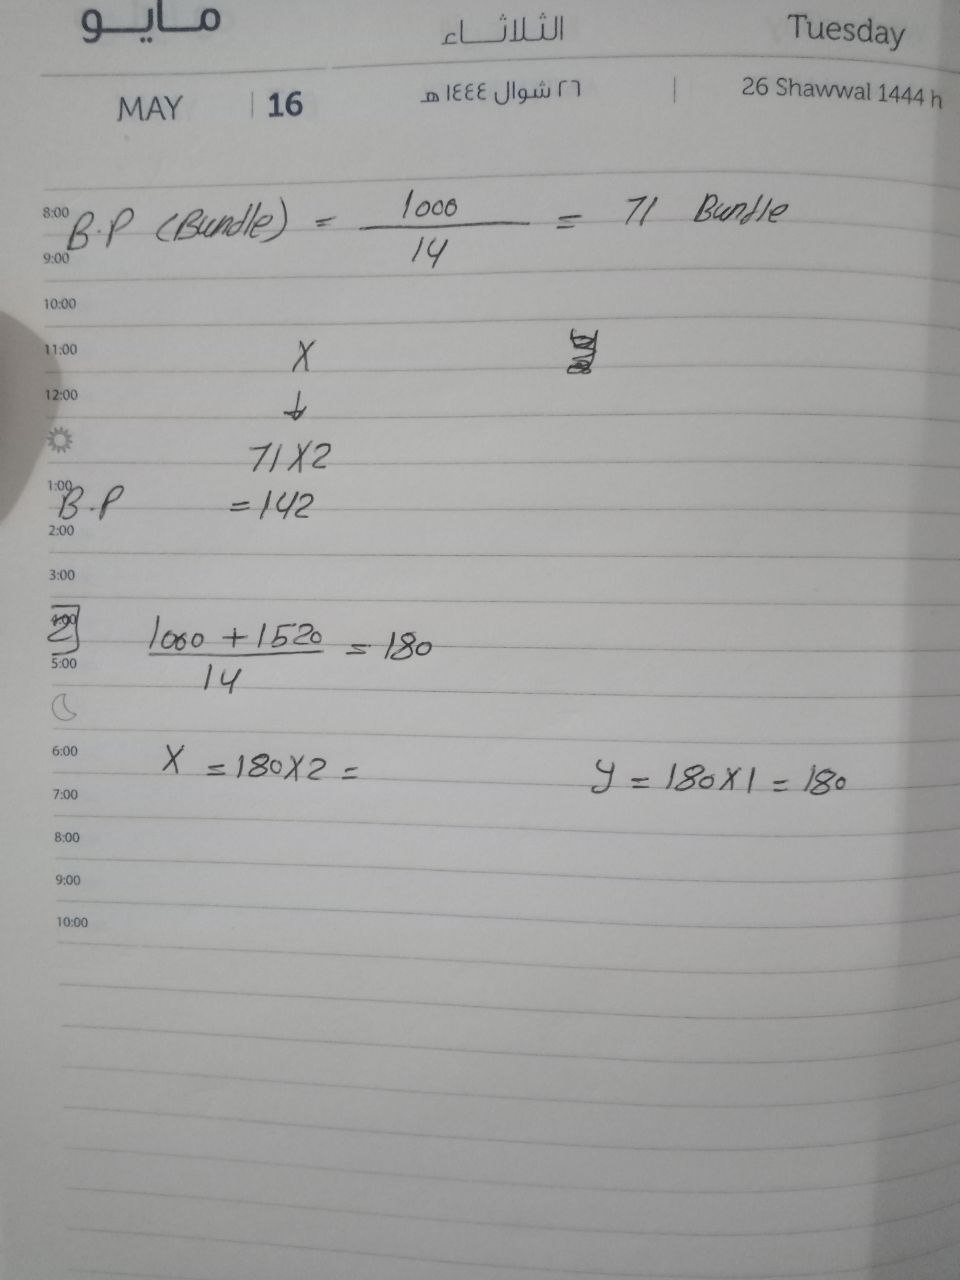 مايو الثلاثاء Tuesday
MAY | 16 ٢٦ شوال ١٤٤٤ هـ | 26 Shawwal 1444 h
8:00
B.P (Bundle) = 1000 / 14 = 71 Bundle
9:00
10:00
11:00 X
12:00 ↓
71X2
1:00
B.P = 142
2:00
3:00
4:00
2] 1000 + 1520 / 14 = 180
5:00
6:00
X = 180X2 = y = 180X1 = 180
7:00
8:00
9:00
10:00